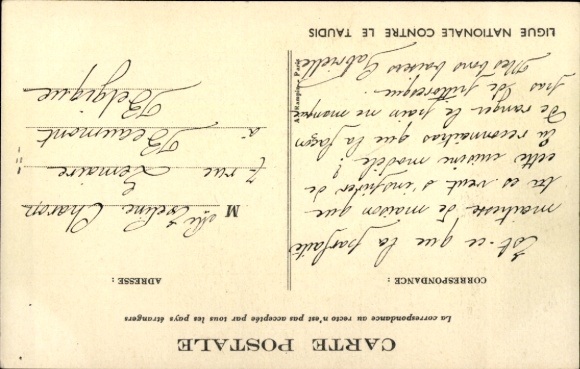 CARTE POSTALE
La correspondance au recto n'est pas acceptée par tous les pays étrangers
CORRESPONDANCE :
Est-ce que la parfaite
maîtresse de maison que
tu es veut s'inspirer de
cette cuisine modèle ?
Tu reconnaîtras que la façon
de ranger le pain ne manque
pas de pittoresque.
Mes bons baisers Gabrielle
LIGUE NATIONALE CONTRE LE TAUDIS
Paris
ADRESSE :
M elle Eveline Charon
7 rue Lemaire
à Beaumont
Belgique